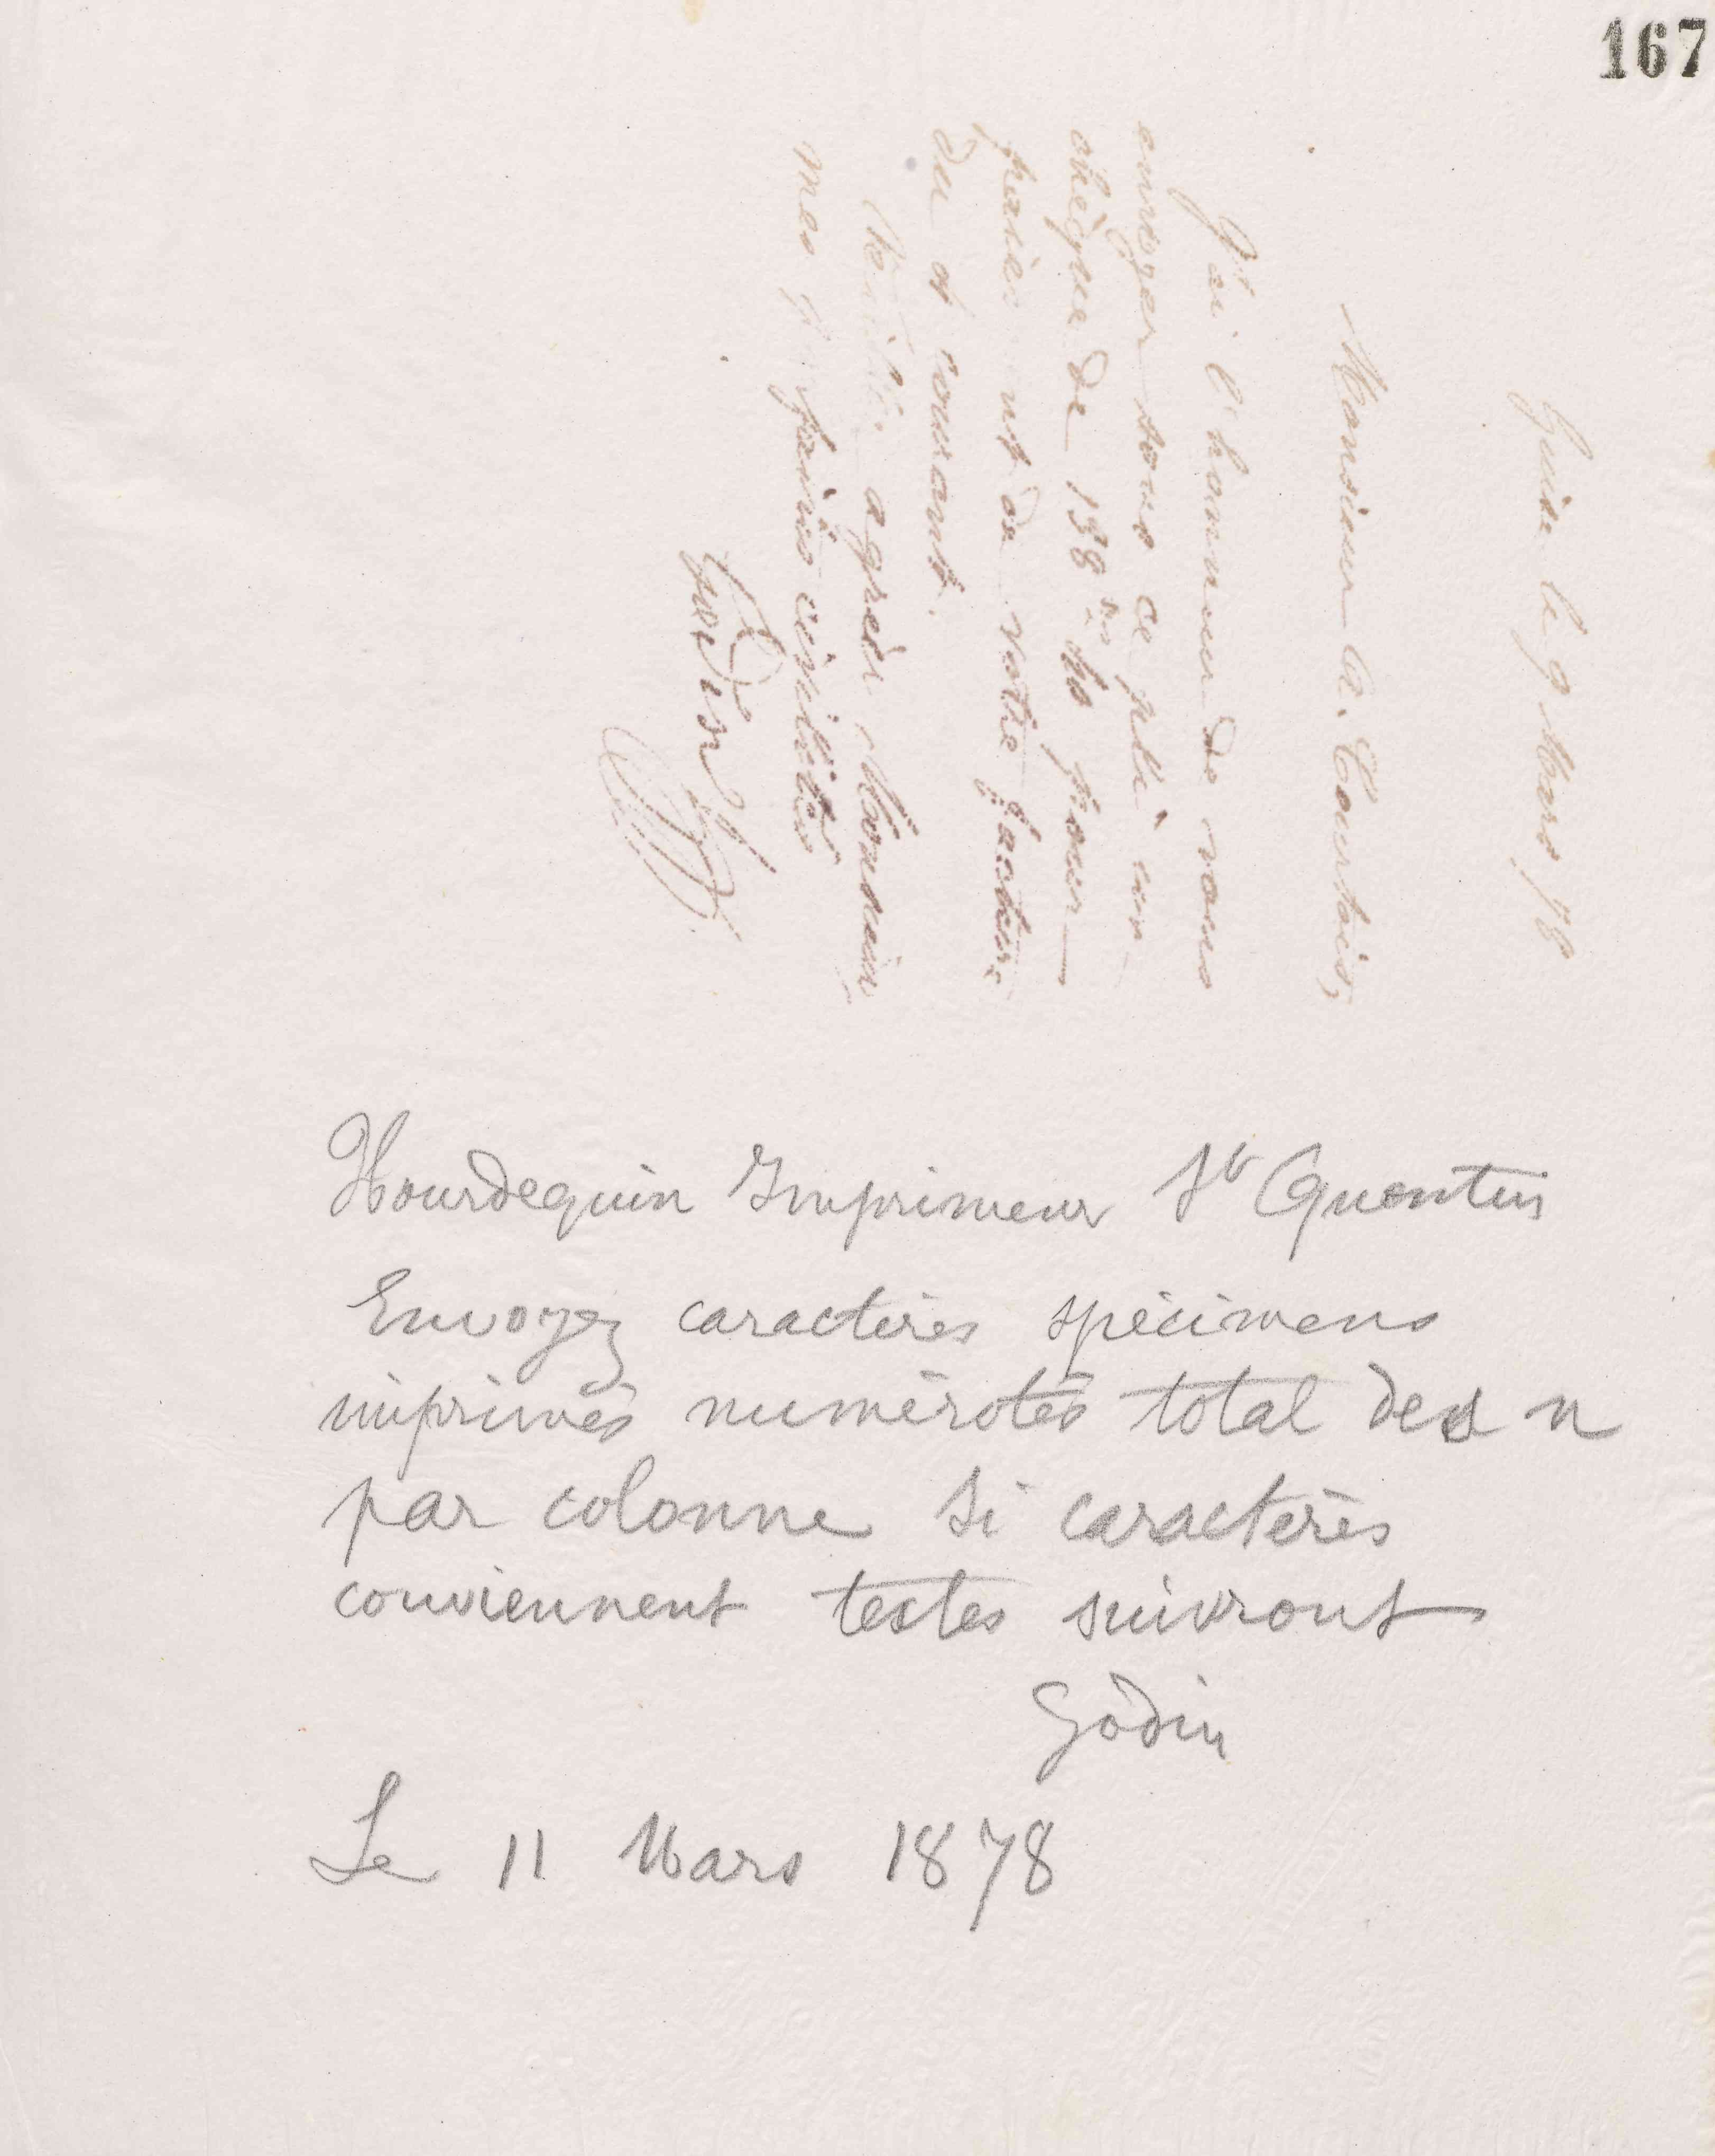 167
Guise le 9 Mars 78
Monsieur A. Courtois,
J'ai l'honneur de vous
envoyer sous ce pli un
chèque de 138 frs 40 pour
paiement de votre facture
du 1 courant.
Veuillez agréer, Monsieur,
mes parfaites civilités
Godin
Hourdequin Imprimeur St Quentin
Envoyez caractères spécimens
imprimés numérotés total des n
par colonne si caractères
conviennent textes suivront
Godin
Le 11 Mars 1878